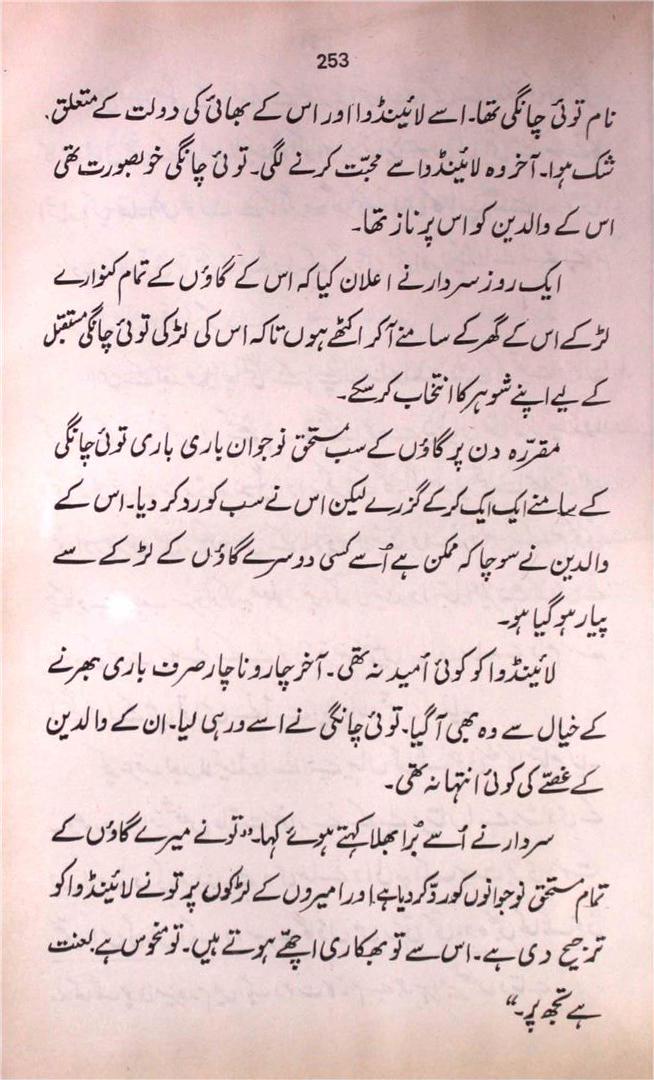 253
نام توئی چانگی تھا۔ اسے لائینڈوا اور اس کے بھائی کی دولت کے متعلق
شک ہوا۔ آخر وہ لائینڈوا سے محبّت کرنے لگی۔ توئی چانگی خوبصورت تھی
اس کے والدین کو اس پر ناز تھا۔
ایک روز سردار نے اعلان کیا کہ اس کے گاؤں کے تمام کنوارے
لڑکے اس کے گھر کے سامنے آکر اکٹھے ہوں تاکہ اس کی لڑکی توئی چانگی مستقبل
کے لیے اپنے شوہر کا انتخاب کرسکے۔
مقرّرہ دن پر گاؤں کے سب مستحق نوجوان باری باری توئی چانگی
کے سامنے ایک ایک کرکے گزرے لیکن اس نے سب کو رد کر دیا۔ اس کے
والدین نے سوچا کہ ممکن ہے اُسے کسی دوسرے گاؤں کے لڑکے سے
پیار ہو گیا ہو۔
لائینڈوا کو کوئی اُمید نہ تھی۔ آخر چار و ناچار صرف باری بھرنے
کے خیال سے وہ بھی آگیا۔ توئی چانگی نے اسے ور ہی لیا۔ ان کے والدین
کے غصّے کی کوئی انتہا نہ تھی۔
سردار نے اُسے بُرا بھلا کہتے ہوئے کہا۔ ”تو نے میرے گاؤں کے
تمام مستحق نوجوانوں کو ردّ کردیا ہے اور امیروں کے لڑکوں پر تو نے لائینڈوا کو
ترجیح دی ہے۔ اس سے تو بھکاری اچھے ہوتے ہیں۔ تو منحوس ہے لعنت
ہے تجھ پر۔“